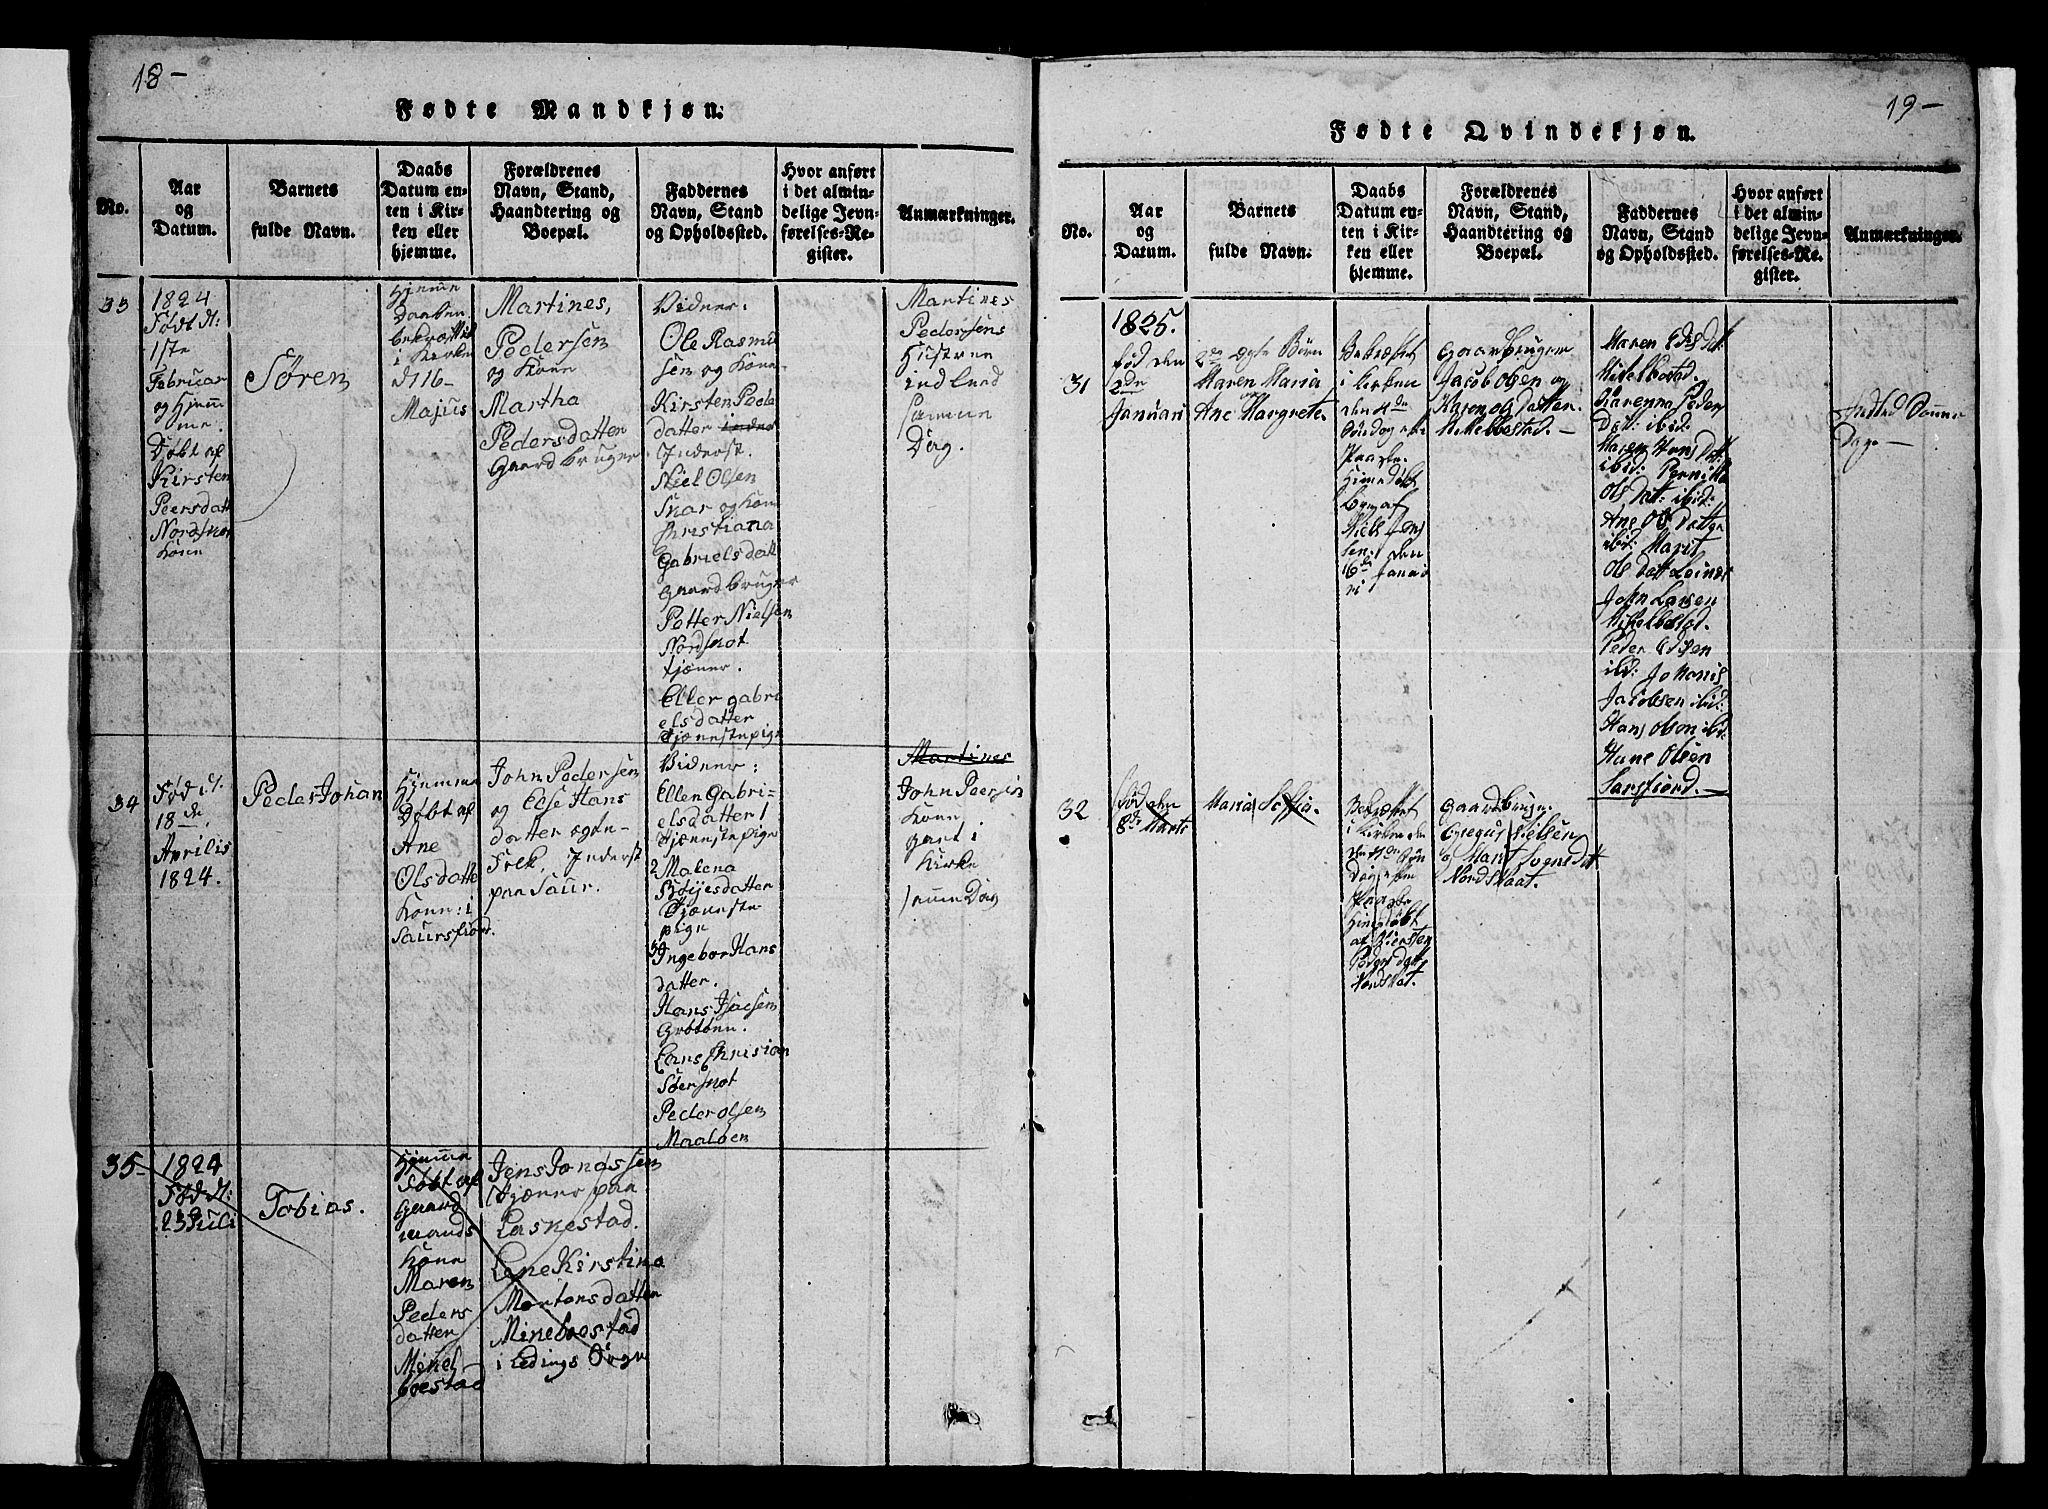 18-
Fødte Mandkjøn.
No.
Aar
og
Datum.
Barnets
fulde Navn.
Daabs
Datum en-
ten i Kir-
ken eller
hjemme.
Forældrenes
Navn, Stand,
Haandtering og
Boepæl.
Faddernes
Navn, Stand
og Opholdssted.
Hvor anført
i det almin-
delige Jevn-
førelses-Re-
gister.
Anmærkninger.
33
1824
Født d:
1ste
Februar
og hjem
me.
Døbt af
Kirsten
Peersdatt
Nordskot
Kone
Søren
Hjemme
Daaben
bekræftet
i Kirken
d 16-
Majus
Martines,
Pedersen
og Kone
Martha
Pedersdatter
Gaardbruger
Vidner:
Ole Rasmu
sen og Kone
Kirsten Peder
datter
Inderst.
Niel Olsen
Skar og Kone
Christiana
Gabrielsdatt
Gaardbruger
Petter Nielsen
Nordskot
tjener.
Ellen gabri
elsdatter
Tjænestepige
Martines
Pedersens
Hustrue
indled
samme
Dag.
34
Fød d.
18 de
Aprilis
1824.
Peder Johan
Hjemme
Døbt af
Ane
Olsdatte
Kone: i
Saursfiord.
John Pedersen
og Else Hans
datter ægte-
Folk, Inderst
paa Saur.
Vidner:
Ellen Gabri-
elsdatter 1
Tjænestepige
2 Malena
datter
Tjæneste-
pige
3 Ingebor Hans
datter.
Hans Isacsen
Grøtøen.
Lars Chrisian
Sørskot
Peder Olsen
Maaløen
Martines
John Peersen
Kone
gaet i
Kirke
samme Dag
35-
1824
Fød d:
23 Juli
Tobias.
Hjemme
Døbt af
Gaard
mands
Kone
Maren
Peders
datter
Mikel
boestad
Jens Jonassen
Tjæner paa
Laskestad.
Lene Kirstina
Mortensdatter
Mikelboestad
i Ledings Sogn
19-
Fødte Qvindekjøn.
No.
Aar
og
Datum.
Barnets
fulde Navn.
Daabs
Datum en-
ten i Kir-
ken eller
hjemme.
Forældrenes
Navn, Stand,
Haandtering og
Boepæl.
Faddernes
Navn, Stand
og Opholdssted.
Hvor anført
i det almin-
delige Jevn-
førelses-Re-
gister.
Anmærkninger.
31
1825.
fød den
2den
Januari
2de ægte Børn
Maren Maria
og
Ane Margrete
Bekræftet
i Kirken
den 4de
Søndag efter
Paaske.
Hiemdøbt
af
Niels Jens
sen. den
16de Janua
ri
Gaardbruger
Jacob Olsen og
Karen Ols Datter.
Mikelboestad.-
Maren Eds dat:
Mikelbostad.
Karenna Peder
Dat: ibid:
Maren Hans Dat:
ibid: Pernilla
Ols Dat: ibid:
Ane Ols Datter
ibid: Marit
Ols Datt Leines
John Larsen
Mikelbostad.
Peder Edisen
ibd: Johanis
Jacobsen ibid:
Hans Olsen ibid
Hans Olsen
Sarsfiord.-
Indled Samme
Dag-
32
Fød den
8de Marts
Maria Sofia.
Bekræftet
i Kirken den
den 4de Søn
Dag efter
Paaske
Hiemdøbt
af Kiersten
Peders datt
Nordskot.
Gaardbruger
Gregus Nielsen
og Marit Sogns Dat
Nordskaat.